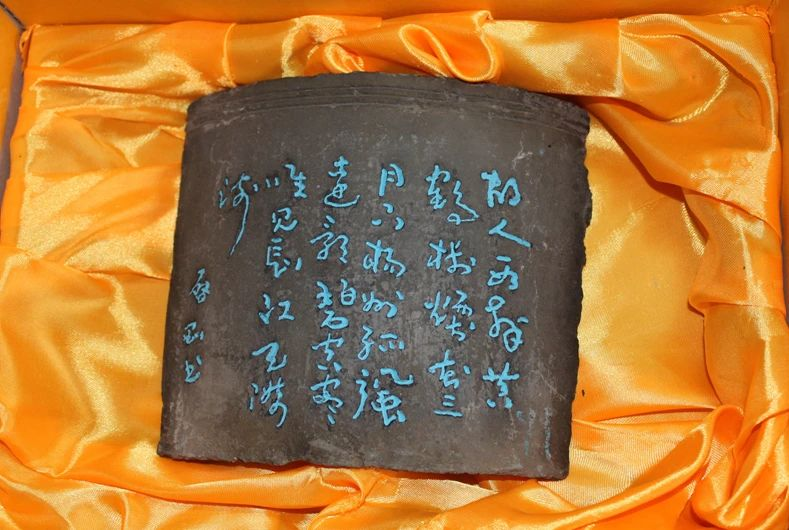 故人西辞黄
鹤楼烟花三
月下揚州孤帆
遠影碧空尽
唯見長江天際
流
启功书